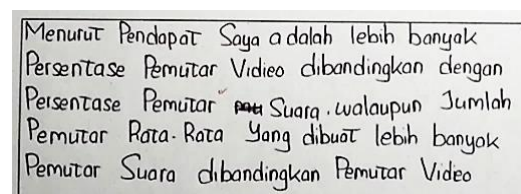 Menurut Pendapat Saya adalah lebih banyak
Persentase Pemutar Vidieo dibandingkan dengan
Persentase Pemutar Suara. walaupun Jumlah
Pemutar Rata-Rata Yang dibuat lebih banyak
Pemutar Suara dibandingkan Pemutar Video